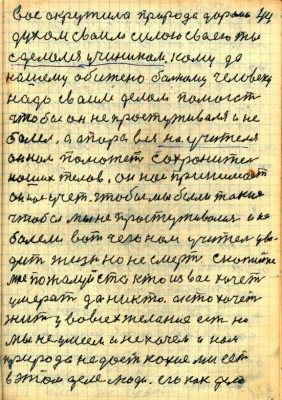 вас окружила природа дорога 44
духом своим силою своею ты
сделался учеником, кому до
нашему обижено больному человеку
надо своим делом помогат
чтобы он не простуживался и не
болел, а опора вся на учителя
он нам поможет сохранител
наших телов. он нас принимает
он нас учет. чтобы мы были такие
чтобы мы не простуживалися и не
болели вот чего нам учител уво
дит жизнь но не смерт. скажите
мне пожалуйста кто из вас хочет
умерат да никто. а кто хочет
жит у вовсех желания ест но
мы не умеем и не хочем и нам
природа не дост какие мы ест
в этом деле люди. его как дело